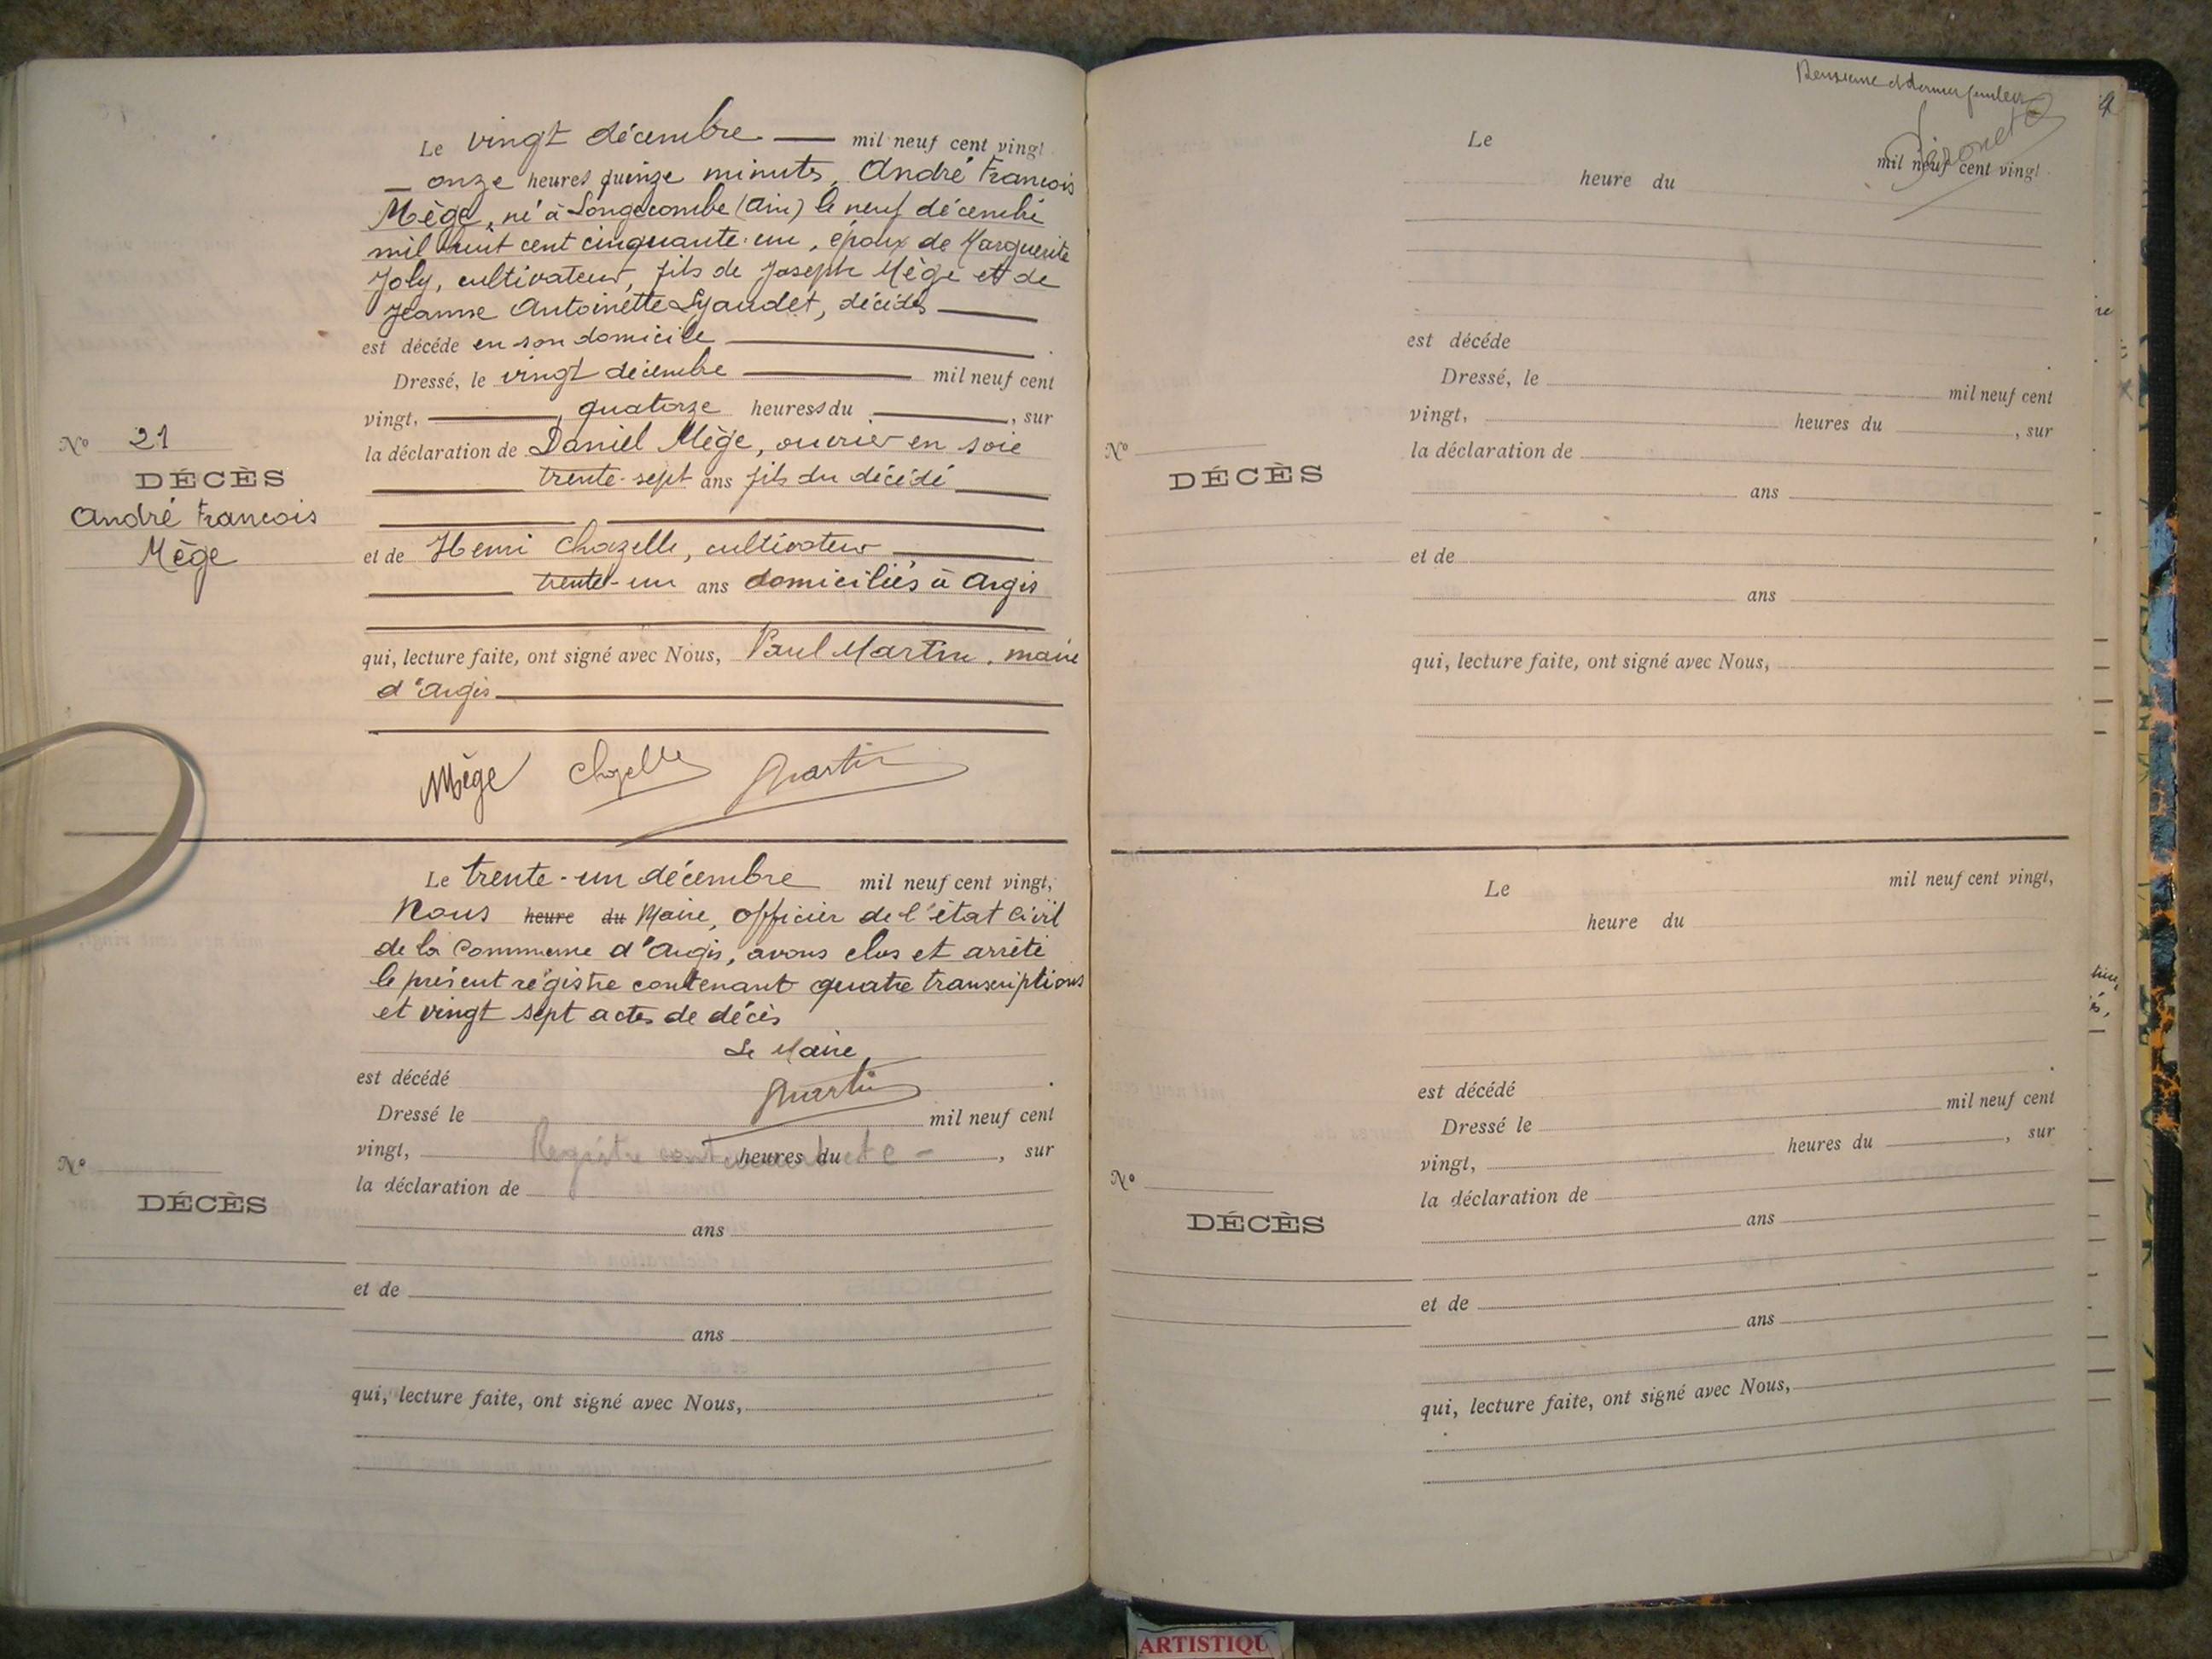 Le vingt décembre mil neuf cent vingt
onze heures quinze minutes, André François
Mège, né à Longecombe (Ain) le neuf décembre
mil huit cent cinquante-un, époux de Marguerite
Joly, cultivateur, fils de Joseph Mège et de
Jeanne Antoinette Lyaudet, décédés
est décédé en son domicile
Dressé, le vingt décembre mil neuf cent
vingt, quatorze heures du , sur
la déclaration de Daniel Mège, ouvrier en soie
trente-sept ans fils du décédé
et de Henri Chazelle, cultivateur
trente-un ans domiciliés à Argis
qui, lecture faite, ont signé avec Nous, Paul Martin, maire
d'Argis
Mège Chazelle Martin
No 21
DÉCÈS
André François
Mège
Le trente-un décembre mil neuf cent vingt,
Nous heure du Maire, officier de l'état civil
de la Commune d'Argis, avons clos et arrêté
le présent registre contenant quatre transcriptions
et vingt sept actes de décès
Le Maire,
Martin
est décédé
Dressé le mil neuf cent
vingt, heures du , sur
Registre
la déclaration de
ans
et de
ans
qui, lecture faite, ont signé avec Nous,
No
DÉCÈS
et dernier feuillet
Le mil neuf cent vingt
heure du
est décédé
Dressé, le mil neuf cent
vingt, heures du , sur
la déclaration de
ans
et de
ans
qui, lecture faite, ont signé avec Nous,
No
DÉCÈS
Le mil neuf cent vingt,
heure du
est décédé
Dressé le mil neuf cent
vingt, heures du , sur
la déclaration de
ans
et de
ans
qui, lecture faite, ont signé avec Nous,
No
DÉCÈS
ARTISTIQU